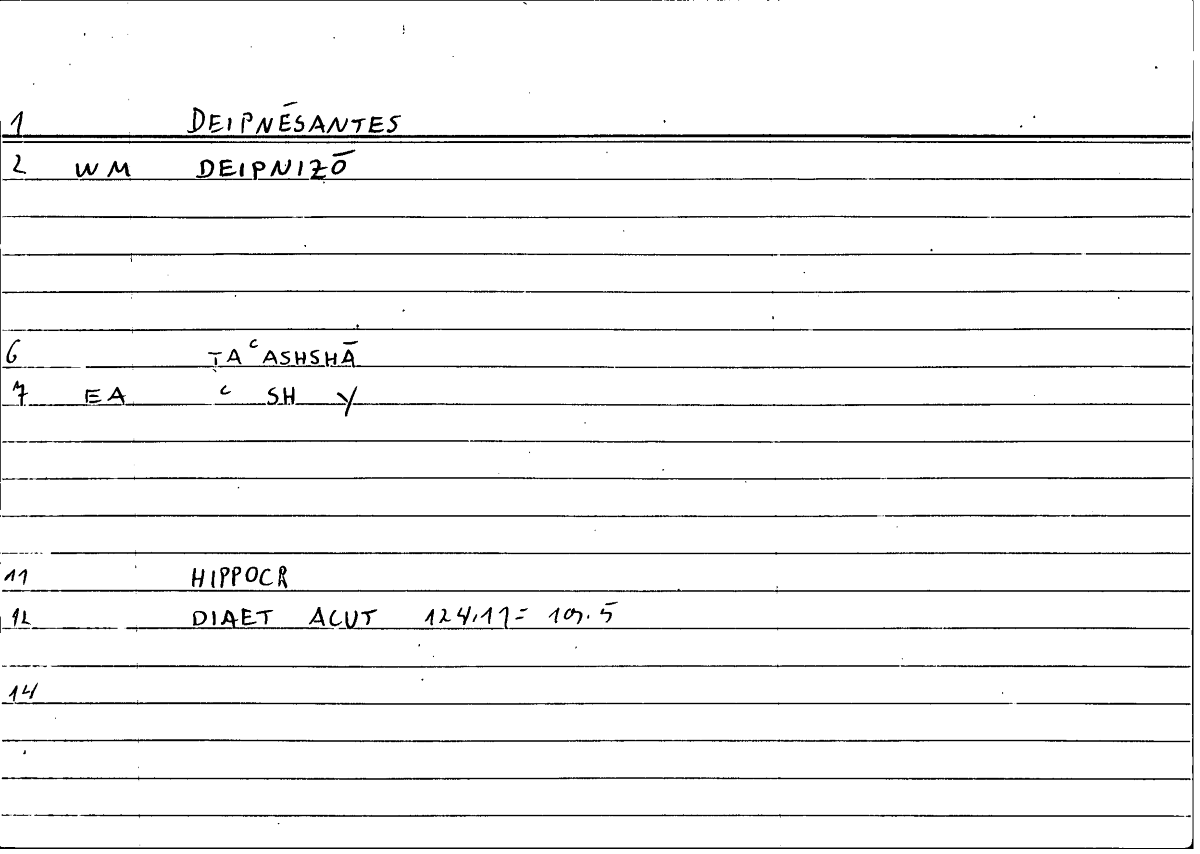 1 DEIPNĒSANTES
2 WM DEIPNIZŌ
6 TAᶜASHSHĀ
7 EA ᶜ SH Y
11 HIPPOCR
12 DIAET ACUT 124,17 = 109.5
14